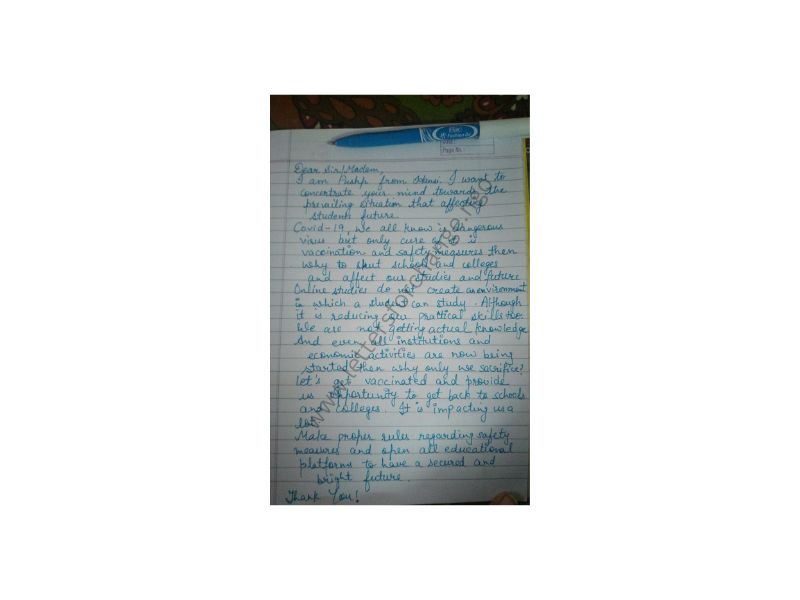 Elac
Date :
Page No. :
Dear Sir/Madam,
I am Pushp from . I want to
concentrate your mind towards the
prevailing situation that affecting
students future.
Covid-19, we all know is dangerous
virus but only cure of it is
vaccination and safety measures then
why to shut schools and colleges
and affect our studies and future.
Online studies do not create an environment
in which a student can study. Although
it is reducing our practical skills too.
We are not getting actual knowledge.
And even all institutions and
economic activities are now being
started then why only we sacrifice?
Let's get vaccinated and provide
us opportunity to get back to schools
and colleges. It is impacting us a
lot.
Make proper rules regarding safety
measures and open all educational
platforms to have a secured and
bright future.
Thank You!
www.lettersforchange.ngo